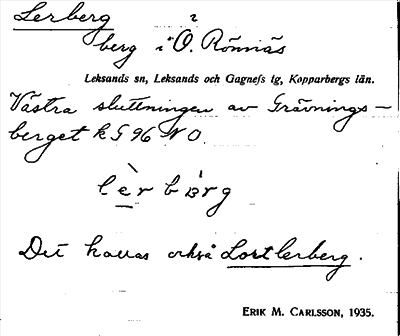 Lerberg
berg i Ö. Rönnäs
Leksands sn, Leksands och Gagnefs tg, Kopparbergs län.
Västra sluttningen av Grävnings-
berget k G 96 N O.
lèr bärg
Det kallas också Lortlerberg.
ERIK M. CARLSSON, 1935.